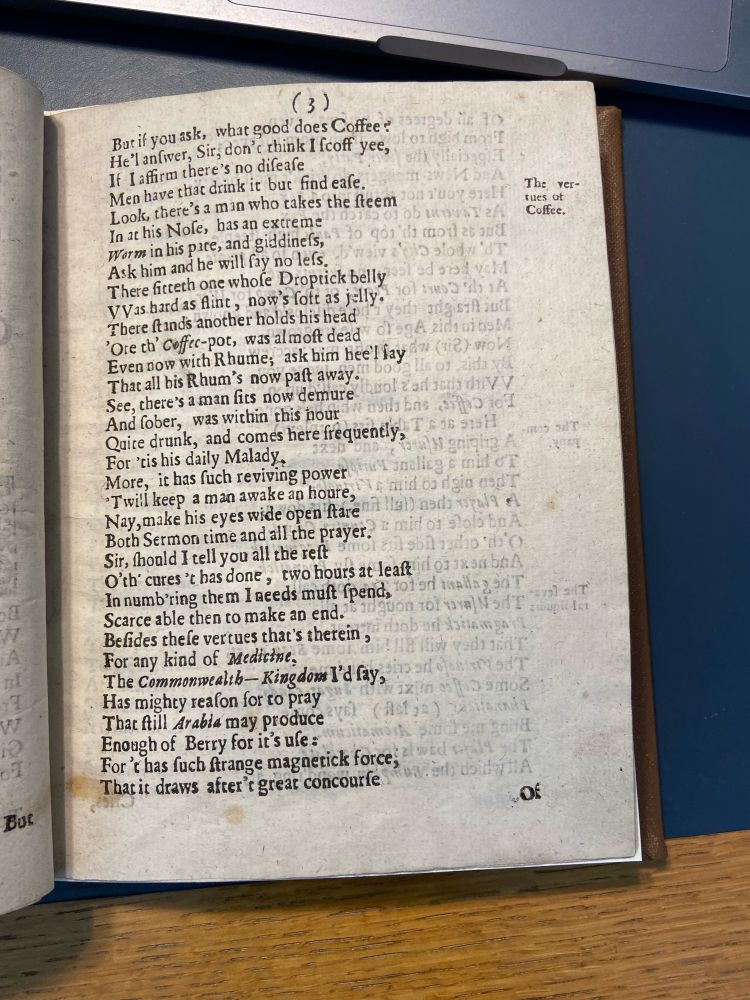 ( 3 )
But if you ask, what good does Coffee?
He'l anſwer, Sir, don't think I ſcoff yee,
If I affirm there's no diſeaſe
Men have that drink it but find eaſe.
The ver-
tues of
Coffee.
Look, there's a man who takes the ſteem
In at his Noſe, has an extreme
Worm in his pate, and giddineſs,
Ask him and he will ſay no leſs.
There ſitteth one whoſe Droptick belly
VVas hard as flint, now's ſoft as jelly.
There ſtands another holds his head
'Ore th' Coffee-pot, was almoſt dead
Even now with Rhume; ask him hee'l ſay
That all his Rhum's now paſt away.
See, there's a man ſits now demure
And ſober, was within this hour
Quite drunk, and comes here frequently,
For 'tis his daily Malady.
More, it has ſuch reviving power
'Twill keep a man awake an houre,
Nay, make his eyes wide open ſtare
Both Sermon time and all the prayer.
Sir, ſhould I tell you all the reſt
O'th' cures 't has done, two hours at leaſt
In numb'ring them I needs muſt ſpend,
Scarce able then to make an end.
Beſides theſe vertues that's therein,
For any kind of Medicine,
The Commonwealth—Kingdom I'd ſay,
Has mighty reaſon for to pray
That ſtill Arabia may produce
Enough of Berry for it's uſe:
For 't has ſuch ſtrange magnetick force,
That it draws after't great concourſe
Of
But